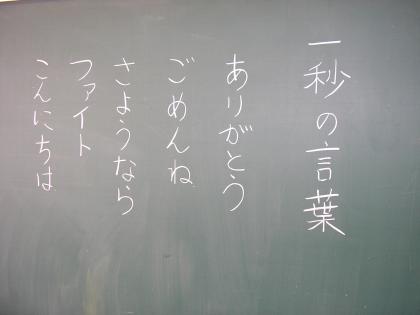 一秒の言葉
ありがとう
ごめんね
さようなら
ファイト
こんにちは